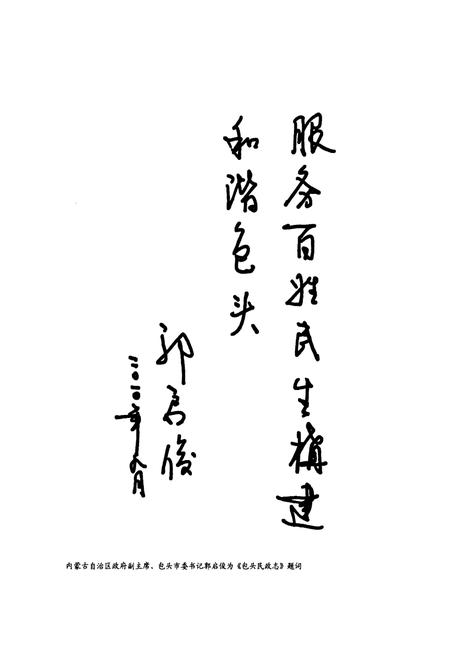 服务百姓民生構建
和谐包头
郭啟俊
二〇一〇年九月
内蒙古自治区政府副主席、包头市委书记郭启俊为《包头民政志》题词